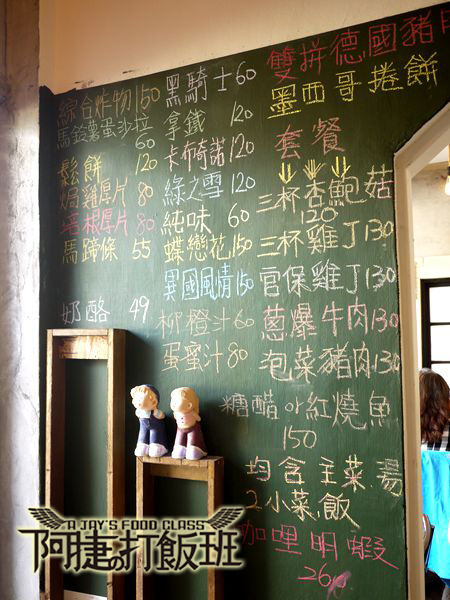 綜合炸物 150
馬鈴薯蛋沙拉
60
鬆餅 120
焗雞厚片 80
培根厚片 80
馬蹄條 55
奶酪 49
黑騎士 60
拿鐵 120
卡布奇諾 120
綠之雪 120
純味 60
蝶戀花 150
異國風情 150
柳橙汁 60
蛋蜜汁 80
雙拼德國豬
墨西哥捲餅
套餐
三杯杏鮑菇
120
三杯雞丁 130
官保雞丁 130
蔥爆牛肉 130
泡菜豬肉 130
糖醋 or 紅燒魚
150
均含主菜.湯
2小菜.飯
咖哩明蝦
260
A JAY'S FOOD CLASS
阿捷の打飯班